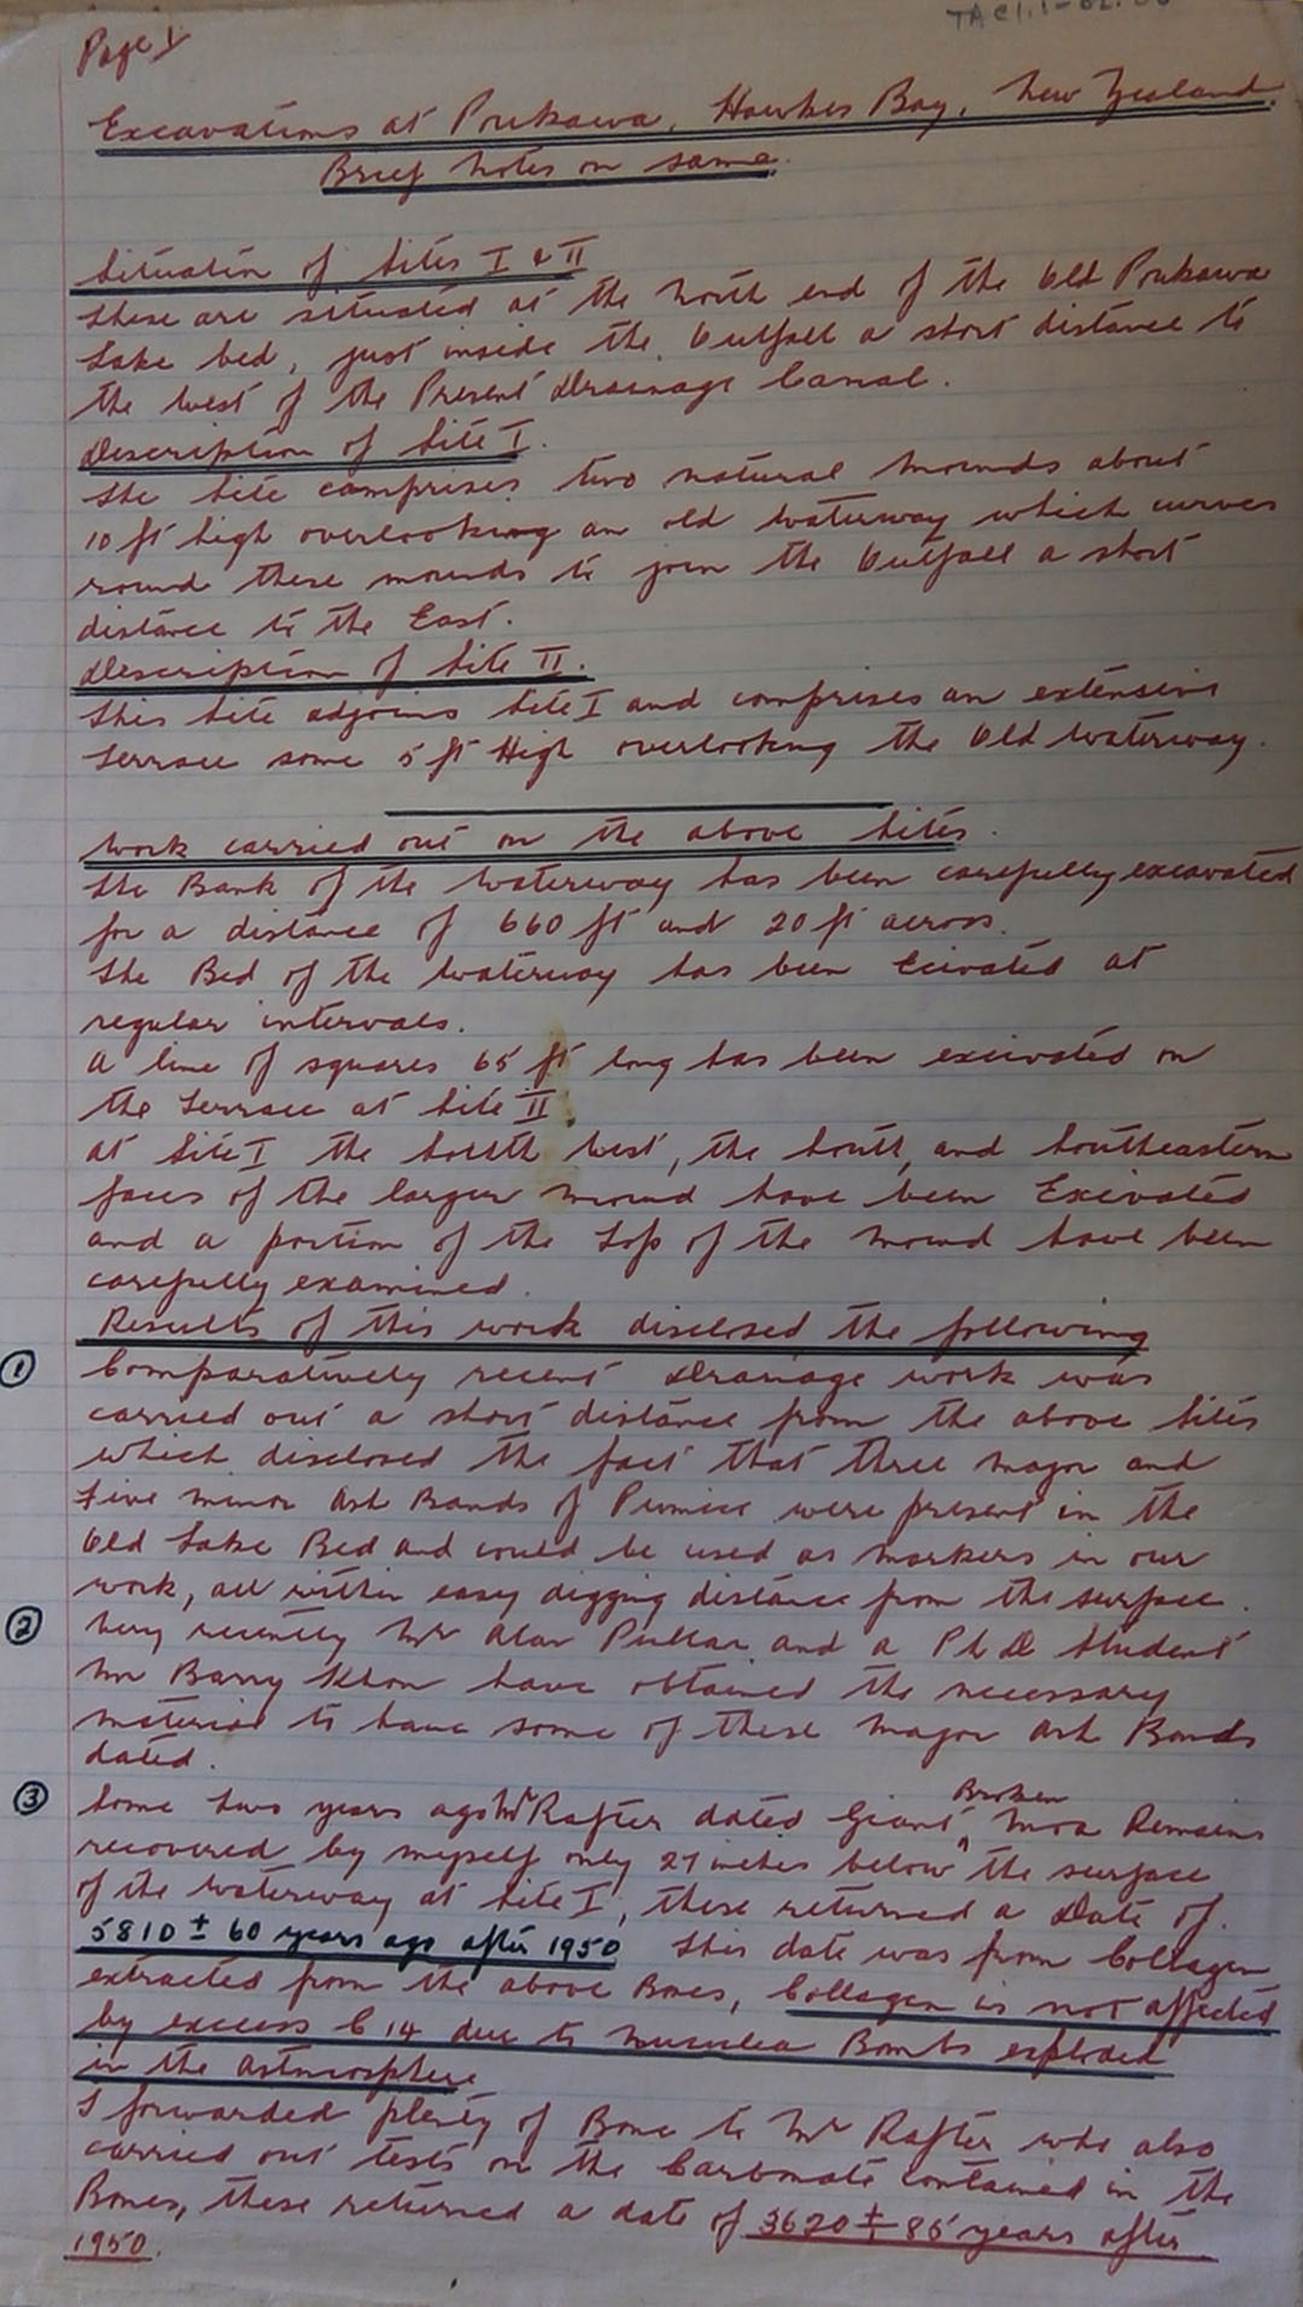 TAC1.1-02.
Page 1
Excavations at Poukawa, Hawkes Bay, New Zealand.
Brief Notes on same.
Situation of Sites I & II
These are situated at the North end of the Old Poukawa
Lake bed, just inside the Outfall a short distance to
the West of the Present Drainage Canal.
Description of Site I.
The Site comprises two natural Mounds about
10 ft high overlooking an old Waterway which curves
round these mounds to join the Outfall a short
distance to the East.
Description of Site II.
This Site adjoins Site I and comprises an extensive
Terrace some 5 ft High overlooking the Old Waterway.
Work carried out on the above Sites.
The Bank of the Waterway has been carefully excavated
for a distance of 660 ft and 20 ft across.
The Bed of the Waterway has been Ecivated at
regular intervals.
A line of squares 65 ft long has been excivated on
the Terrace at Site II.
At Site I the South West, the South, and Southeastern
faces of the larger Mound have been Excivated
and a portion of the Top of the Mound have been
carefully examined.
Results of this work disclosed the following
① Comparatively recent Drainage work was
carried out a short distance from the above Sites
which disclosed the fact that three major and
five minor Ash Bands of Pumice were present in the
Old Lake Bed and could be used as Markers in our
work, all within easy digging distance from the surface.
② Very recently Mr Alan Pullar and a Ph D Student
Mr Barry Khon have obtained the necessary
material to have some of these Major Ash Bands
dated.
③ Some two years ago Mr Rafter dated Giant Broken Moa Remains
recovered by myself only 27 inches below the surface
of the Waterway at Site I, these returned a Date of.
5810 ± 60 years ago after 1950 This date was from Collagen
extracted from the above Bones, Collagen is not affected
by excess C 14 due to Nuculea Bombs exploded
in the Astmosphere
I forwarded plenty of Bone to Mr Rafter who also
carried out tests on the Carbonate contained in the
Bones, these returned a date of 3620 ± 85 years after
1950.